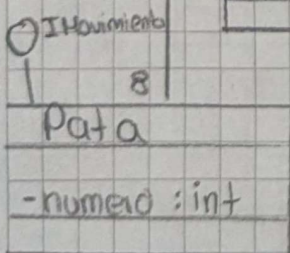 IMovimiento
8
Pata
-numero : int